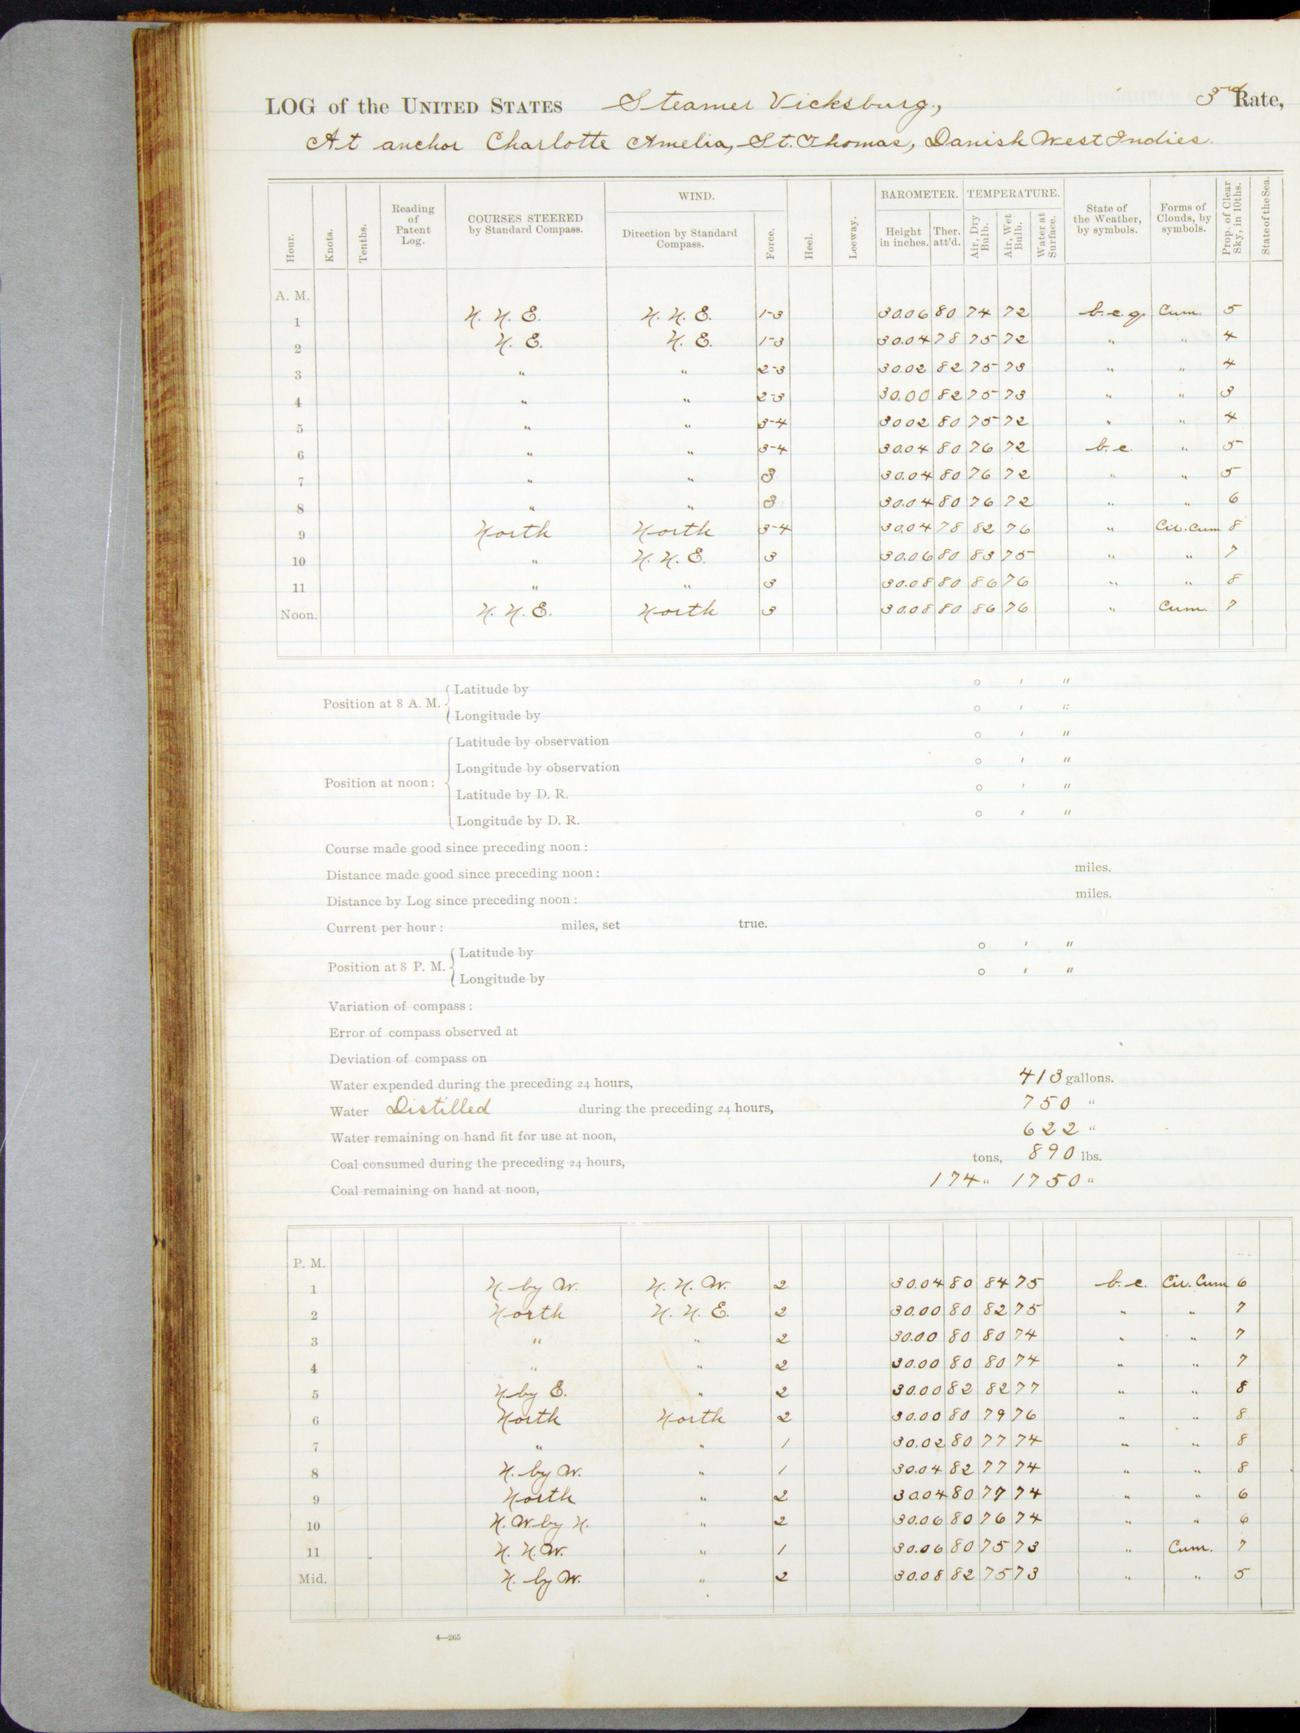 LOG of the UNITED STATES Steamer Vicksburg, 3rd Rate,
At anchor Charlotte Amelia, St. Thomas, Danish West Indies.
Hour. Knots. Tenths. Reading of Patent Log. COURSES STEERED by Standard Compass. WIND. Direction by Standard Compass. Force. Heel. Leeway. BAROMETER. Height in inches. Ther. att'd. TEMPERATURE. Air, Dry Bulb. Air, Wet Bulb. Water at Surface. State of the Weather, by symbols. Forms of Clouds, by symbols. Prop. of Clear Sky, in 10ths. State of the Sea.
A. M.
1 N. N. E. N. N. E. 1-3 30.06 80 74 72 b.c.q. Cum. 5
2 N. E. N. E. 1-3 30.04 78 75 72 " " 4
3 " " 2-3 30.02 82 75 73 " " 4
4 " " 2-3 30.00 82 75 73 " " 3
5 " " 3-4 30 02 80 75 72 " " 4
6 " " 3-4 30.04 80 76 72 b.c. " 5
7 " " 3 30.04 80 76 72 " " 5
8 " " 3 30.04 80 76 72 " " 6
9 North North 3-4 30.04 78 82 76 " Cir. Cum 8
10 " N. N. E. 3 30.06 80 83 75 " " 7
11 " " 3 30.08 80 86 76 " " 8
Noon. N. N. E. North 3 30.08 80 86 76 " Cum. 7
Position at 8 A. M. Latitude by ° ' "
Longitude by ° ' "
Position at noon: Latitude by observation ° ' "
Longitude by observation ° ' "
Latitude by D. R. ° ' "
Longitude by D. R. ° ' "
Course made good since preceding noon:
Distance made good since preceding noon: miles.
Distance by Log since preceding noon: miles.
Current per hour: miles, set true.
Position at 8 P. M. Latitude by ° ' "
Longitude by ° ' "
Variation of compass:
Error of compass observed at
Deviation of compass on
Water expended during the preceding 24 hours, 413 gallons.
Water Distilled during the preceding 24 hours, 750 "
Water remaining on hand fit for use at noon, 622 "
Coal consumed during the preceding 24 hours, tons, 890 lbs.
Coal remaining on hand at noon, 174 " 1750 "
P. M.
1 N. by W. N. N. W. 2 30.04 80 84 75 b.c. Cir. Cum 6
2 North N. N. E. 2 30.00 80 82 75 " " 7
3 " " 2 30.00 80 80 74 " " 7
4 " " 2 30.00 80 80 74 " " 7
5 N by E. " 2 30.00 82 82 77 " " 8
6 North North 2 30.00 80 79 76 " " 8
7 " " 1 30.02 80 77 74 " " 8
8 N. by W. " 1 30.04 82 77 74 " " 8
9 North " 2 30.04 80 77 74 " " 6
10 N. W by N. " 2 30.06 80 76 74 " " 6
11 N. N. W. " 1 30.06 80 75 73 " Cum. 7
Mid. N. by W. " 2 30.08 82 75 73 " " 5
4—265